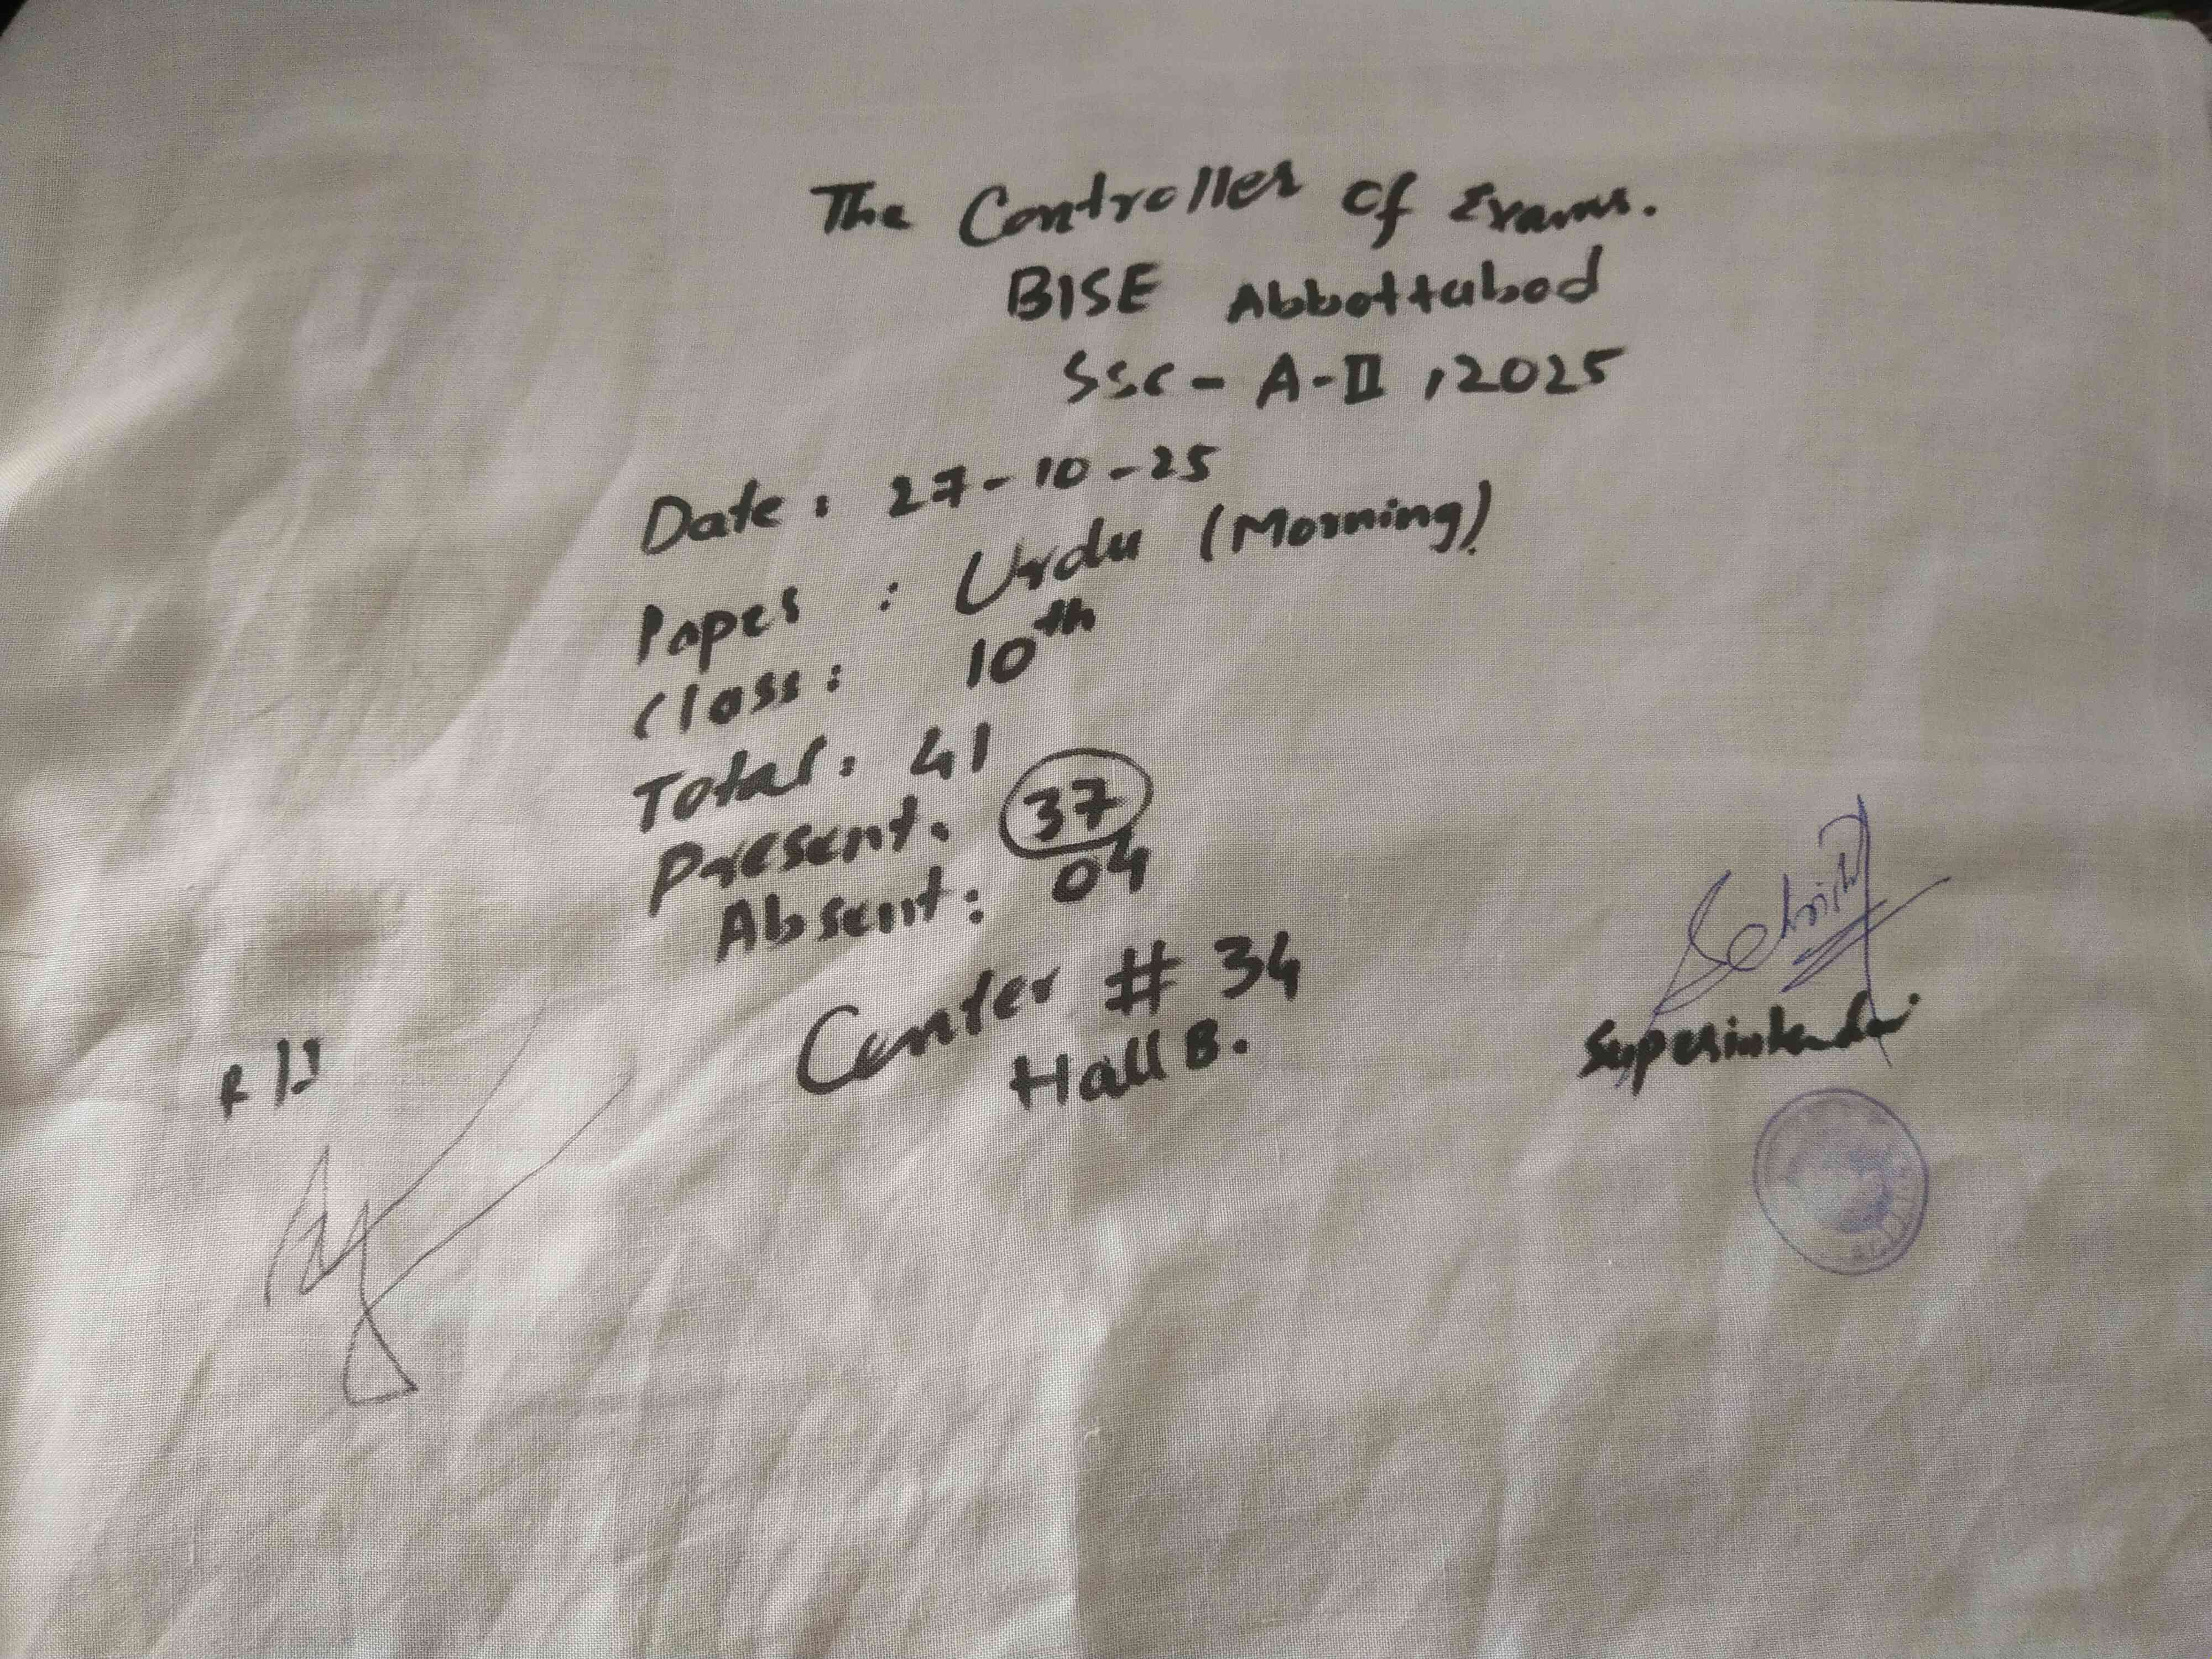 The Controller of Exams.
BISE Abbottabad
SSC - A-II, 2025
Date: 27-10-25
Paper : Urdu (Morning)
Class: 10th
Total: 41
Present: 37
Absent: 04
Center # 34
Hall B.
Superintendent